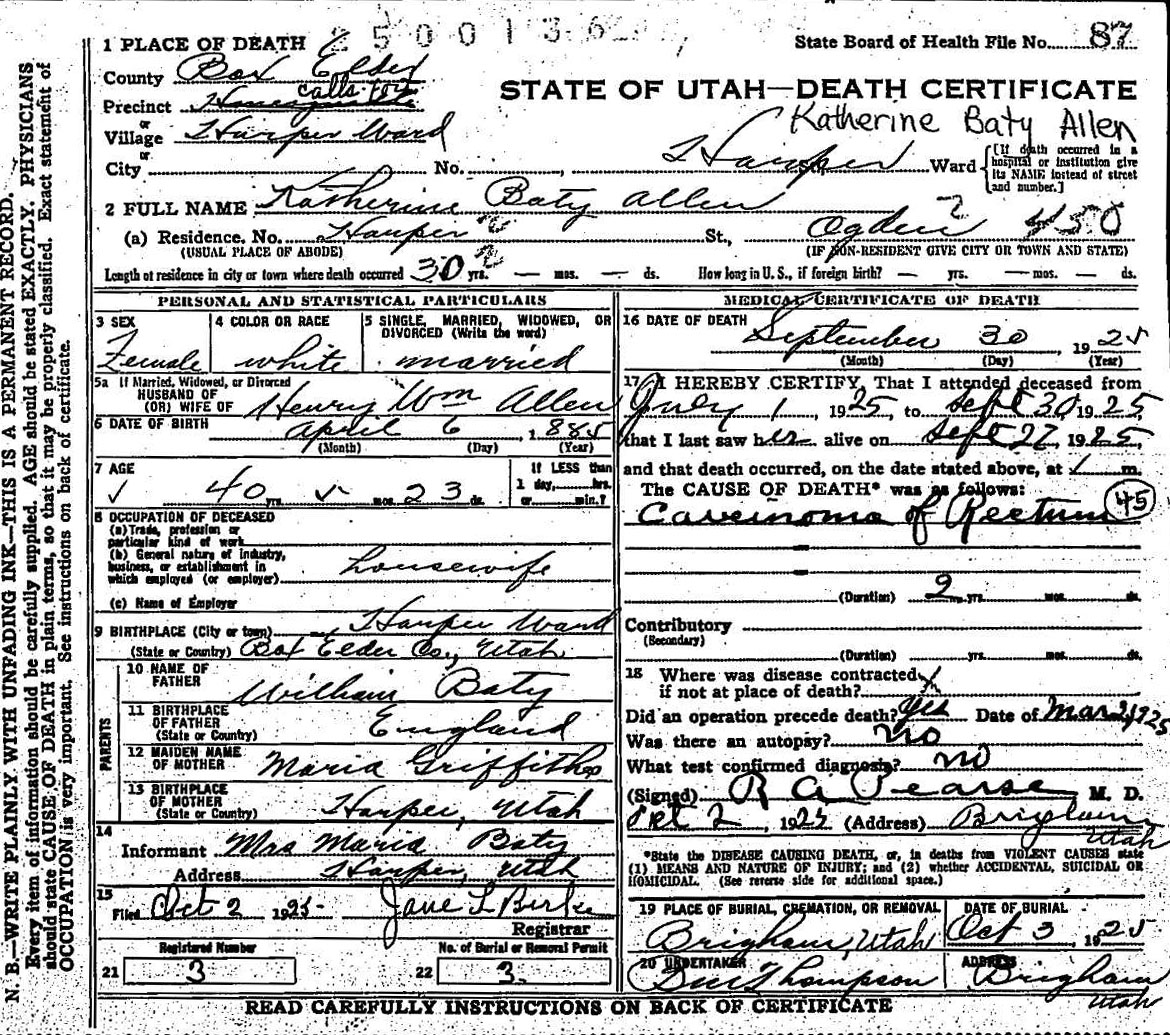 2500136
1 PLACE OF DEATH
State Board of Health File No. 87
County Box Elder
STATE OF UTAH—DEATH CERTIFICATE
calls fort
Precinct Honeyville
Katherine Baty Allen
or
Village Harper Ward
or
City No. St., Harper Ward
[If death occurred in a hospital or institution give its NAME instead of street and number.]
2 FULL NAME Katherine Baty Allen
(a) Residence. No. Harper St., Ogden ? 450
(USUAL PLACE OF ABODE) (IF NON-RESIDENT GIVE CITY OR TOWN AND STATE)
Length of residence in city or town where death occurred 30 yrs. — mos. — ds. How long in U. S., if foreign birth? — yrs. — mos. — ds.
PERSONAL AND STATISTICAL PARTICULARS
3 SEX
Female
4 COLOR OR RACE
white
5 SINGLE, MARRIED, WIDOWED, OR
DIVORCED (Write the word)
married
5a If Married, Widowed, or Divorced
HUSBAND OF
(OR) WIFE OF Henry Wm Allen
6 DATE OF BIRTH April 6, 1885
(Month) (Day) (Year)
7 AGE
40 yrs. mos. 23 ds.
If LESS than
1 day, hrs.
or min.?
8 OCCUPATION OF DECEASED
(a) Trade, profession or
particular kind of work
(b) General nature of industry,
business, or establishment in
which employed (or employer) housewife
(c) Name of Employer
9 BIRTHPLACE (City or town) Harper Ward
(State or Country) Box Elder Co, Utah
PARENTS
10 NAME OF
FATHER William Baty
11 BIRTHPLACE
OF FATHER
(State or Country) England
12 MAIDEN NAME
OF MOTHER Maria Griffiths
13 BIRTHPLACE
OF MOTHER
(State or Country) Harper, Utah
14
Informant Mrs Maria Baty
Address Harper, Utah
15
Filed Oct 2 1925 Jane L Birke
Registrar
Registered Number
21 3
No. of Burial or Removal Permit
22 3.
MEDICAL CERTIFICATE OF DEATH
16 DATE OF DEATH
September 30 1925
(Month) (Day) (Year)
17 I HEREBY CERTIFY, That I attended deceased from
July 1, 1925, to Sept 30 1925,
that I last saw her alive on Sept 27 1925,
and that death occurred, on the date stated above, at m.
The CAUSE OF DEATH* was as follows:
Carcinoma of Rectum 45
(Duration) 2 yrs. mos. ds.
Contributory
(Secondary)
(Duration) yrs. mos. ds.
18 Where was disease contracted
if not at place of death?
Did an operation precede death? Yes Date of Mar 2, 1925
Was there an autopsy? no
What test confirmed diagnosis? no
(Signed) R A Pearse M. D.
Oct 2, 1925 (Address) Brigham
Utah
*State the DISEASE CAUSING DEATH, or, in deaths from VIOLENT CAUSES state
(1) MEANS AND NATURE OF INJURY; and (2) whether ACCIDENTAL, SUICIDAL OR
HOMICIDAL. (See reverse side for additional space.)
19 PLACE OF BURIAL, CREMATION, OR REMOVAL
Brigham, Utah
DATE OF BURIAL
Oct 3, 1925
20 UNDERTAKER
Thompson
ADDRESS
Brigham
Utah
READ CAREFULLY INSTRUCTIONS ON BACK OF CERTIFICATE
N. B.—WRITE PLAINLY WITH UNFADING INK—THIS IS A PERMANENT RECORD.
Every item of information should be carefully supplied. AGE should be stated EXACTLY. PHYSICIANS
should state CAUSE OF DEATH in plain terms, so that it may be properly classified. Exact statement of
OCCUPATION is very important. See instructions on back of certificate.